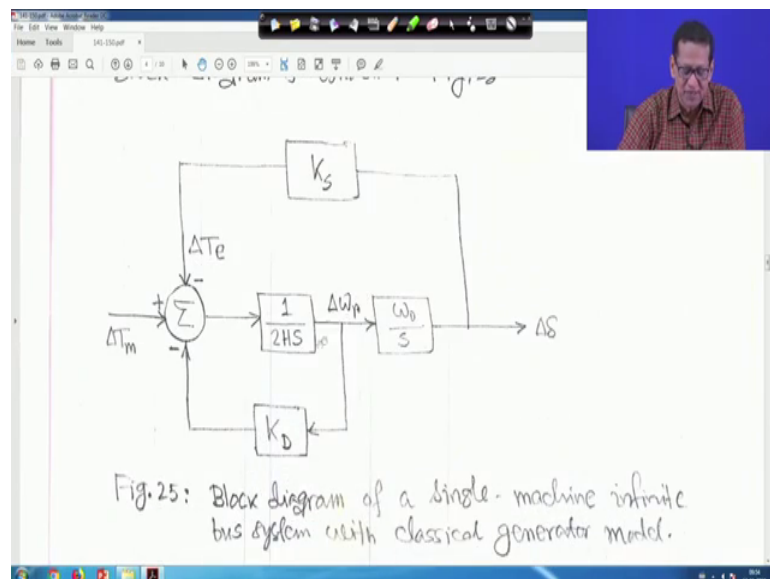 141-150.pdf - Adobe Acrobat Reader DC
File Edit View Window Help
Home Tools 141-150.pdf ×
K_S
ΔTe
-
+
Σ
-
ΔTm
1
2HS
Δω_r
ω_0
S
Δδ
K_D
Fig. 25: Block diagram of a single-machine infinite
bus system with classical generator model.